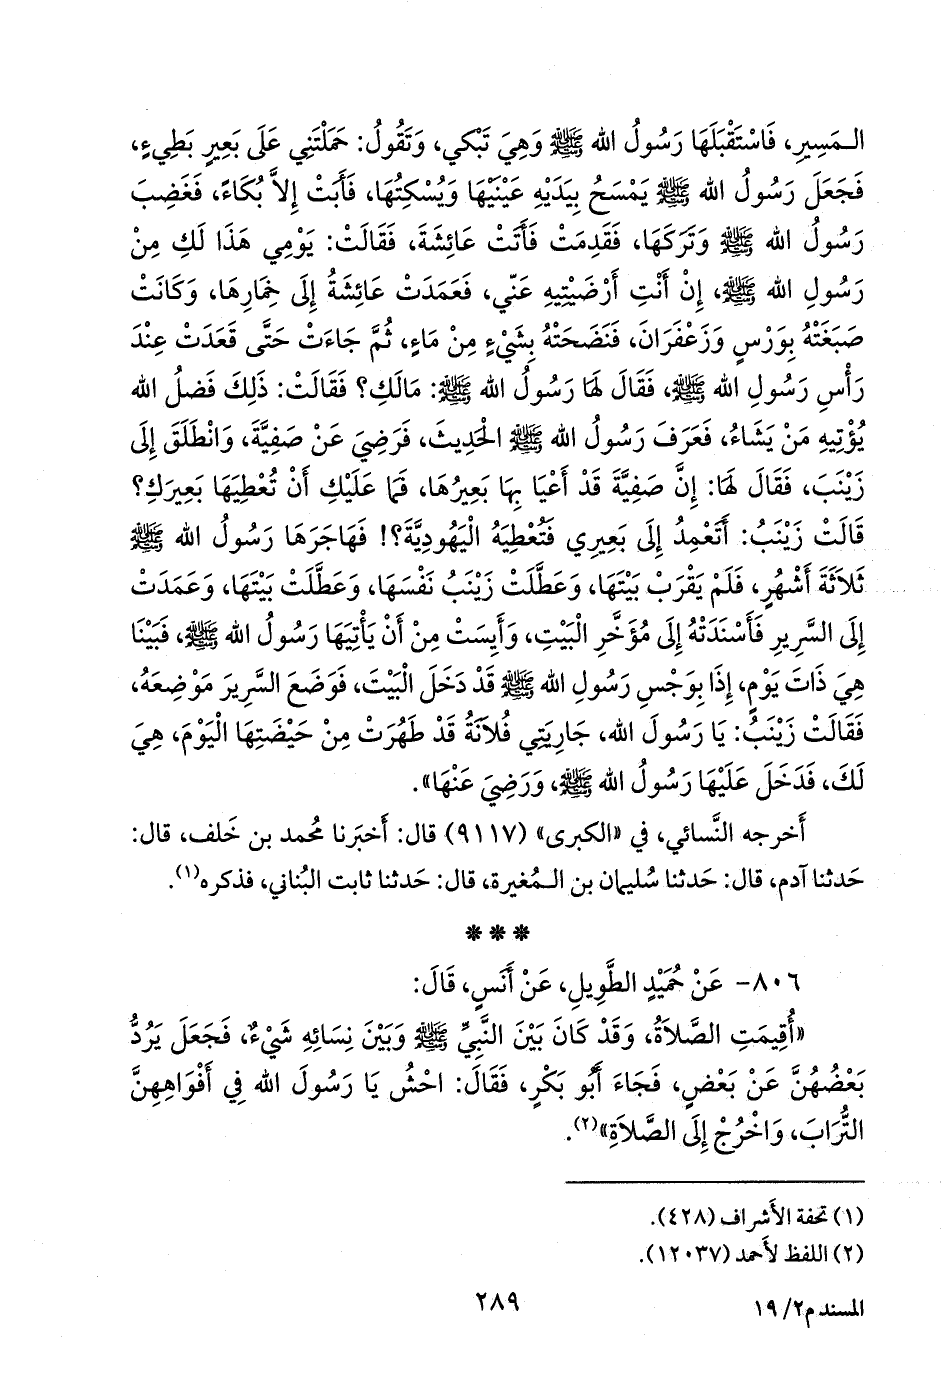 الـمَسِيرِ، فَاسْتَقْبَلَهَا رَسُولُ الله ﷺ وَهِيَ تَبْكي، وَتَقُولُ: حَمَلْتَنِي عَلَى بَعِيرٍ بَطِيءٍ،
فَجَعَلَ رَسُولُ الله ﷺ يَمْسَحُ بِيَدَيْهِ عَيْنَيْهَا وَيُسْكِتُهَا، فَأَبَتْ إِلاَّ بُكَاءً، فَغَضِبَ
رَسُولُ الله ﷺ وَتَرَكَهَا، فَقَدِمَتْ فَأَتَتْ عَائِشَةَ، فَقَالَتْ: يَوْمِي هَذَا لَكِ مِنْ
رَسُولِ الله ﷺ، إِنْ أَنْتِ أَرْضَيْتِيهِ عَنِّي، فَعَمَدَتْ عَائِشَةُ إِلَى خِمَارِهَا، وَكَانَتْ
صَبَغَتْهُ بِوَرْسٍ وَزَعْفَرَانَ، فَنَضَحَتْهُ بِشَيْءٍ مِنْ مَاءٍ، ثُمَّ جَاءَتْ حَتَّى قَعَدَتْ عِنْدَ
رَأْسِ رَسُولِ الله ﷺ، فَقَالَ لَهَا رَسُولُ الله ﷺ: مَالَكِ؟ فَقَالَتْ: ذَلِكَ فَضلُ الله
يُؤْتِيهِ مَنْ يَشَاءُ، فَعَرَفَ رَسُولُ الله ﷺ الْحَدِيثَ، فَرَضِيَ عَنْ صَفِيَّةَ، وَانْطَلَقَ إِلَى
زَيْنَبَ، فَقَالَ لَهَا: إِنَّ صَفِيَّةَ قَدْ أَعْيَا بِهَا بَعِيرُهَا، فَمَا عَلَيْكِ أَنْ تُعْطِيَهَا بَعِيرَكِ؟
قَالَتْ زَيْنَبُ: أَتَعْمِدُ إِلَى بَعِيرِي فَتُعْطِيَهُ الْيَهُودِيَّةَ؟! فَهَاجَرَهَا رَسُولُ الله ﷺ
ثَلَاثَةَ أَشْهُرٍ، فَلَمْ يَقْرَبْ بَيْتَهَا، وَعَطَّلَتْ زَيْنَبُ نَفْسَهَا، وَعَطَّلَتْ بَيْتَهَا، وَعَمَدَتْ
إِلَى السَّرِيرِ فَأَسْنَدَتْهُ إِلَى مُؤَخَّرِ الْبَيْتِ، وَأَيِسَتْ مِنْ أَنْ يَأْتِيَهَا رَسُولُ الله ﷺ، فَبَيْنَا
هِيَ ذَاتَ يَوْمٍ، إِذَا بِوَجْسِ رَسُولِ الله ﷺ قَدْ دَخَلَ الْبَيْتَ، فَوَضَعَ السَّرِيرَ مَوْضِعَهُ،
فَقَالَتْ زَيْنَبُ: يَا رَسُولَ الله، جَارِيَتِي فُلَانَةُ قَدْ طَهُرَتْ مِنْ حَيْضَتِهَا الْيَوْمَ، هِيَ
لَكَ، فَدَخَلَ عَلَيْهَا رَسُولُ الله ﷺ، وَرَضِيَ عَنْهَا».
أَخرجه النَّسائي، في «الكبرى» (٩١١٧) قال: أَخبَرنا مُحمد بن خَلف، قال:
حَدثنا آدم، قال: حَدثنا سُليمان بن الـمُغيرة، قال: حَدثنا ثابت البُناني، فذكره(١).
* * *
٨٠٦- عَنْ حُمَيْدٍ الطَّوِيلِ، عَنْ أَنَسٍ، قَالَ:
«أُقِيمَتِ الصَّلَاةُ، وَقَدْ كَانَ بَيْنَ النَّبِيِّ ﷺ وَبَيْنَ نِسَائِهِ شَيْءٌ، فَجَعَلَ يَرُدُّ
بَعْضُهُنَّ عَنْ بَعْضٍ، فَجَاءَ أَبُو بَكْرٍ، فَقَالَ: احْشُ يَا رَسُولَ الله فِي أَفْوَاهِهِنَّ
التُّرَابَ، وَاخْرُجْ إِلَى الصَّلَاةِ»(٢).
(١) تحفة الأَشراف (٤٢٨).
(٢) اللفظ لأَحمد (١٢٠٣٧).
المسند م٢/ ١٩
٢٨٩